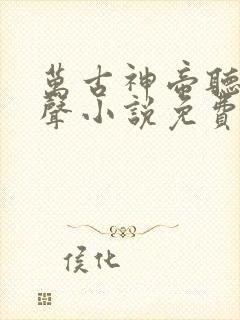 萬古神帝聽
聲小説免費
侯化